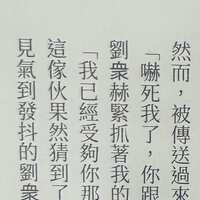 然而，被傳送過來
「嚇死我了，你跟
劉衆赫緊抓著我的
「我已經受夠你那
這傢伙果然猜到了
見氣到發抖的劉衆